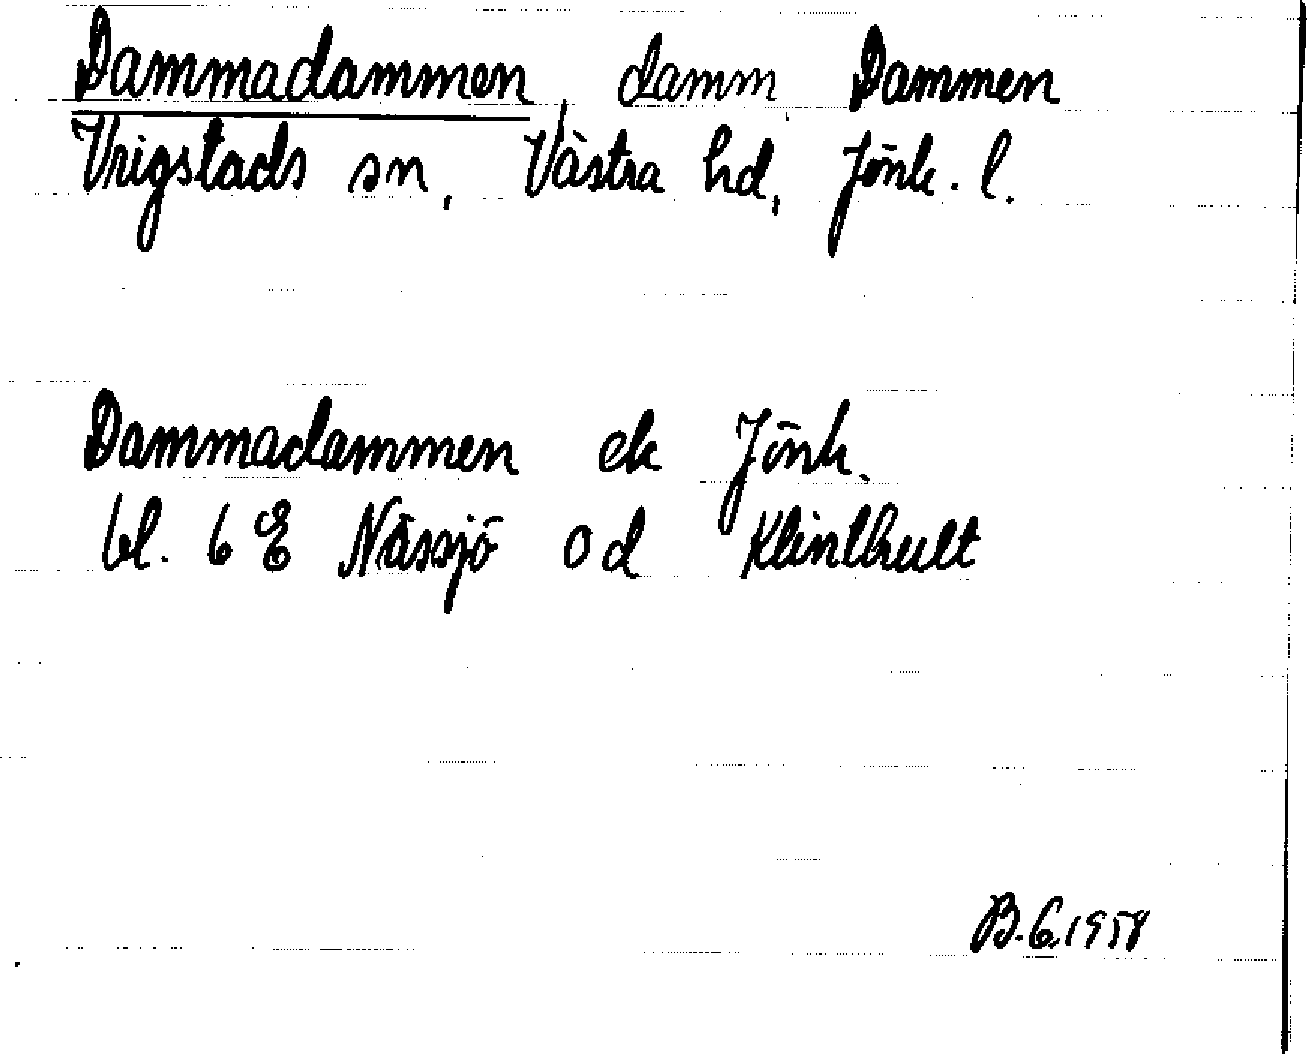 Dammadammen, damm, Dammen
Vrigstads sn, Västra hd, Jönk. l.
Dammadammen ek Jönk.
bl. 6 E Nässjö od Klinthult
B.G. 1958